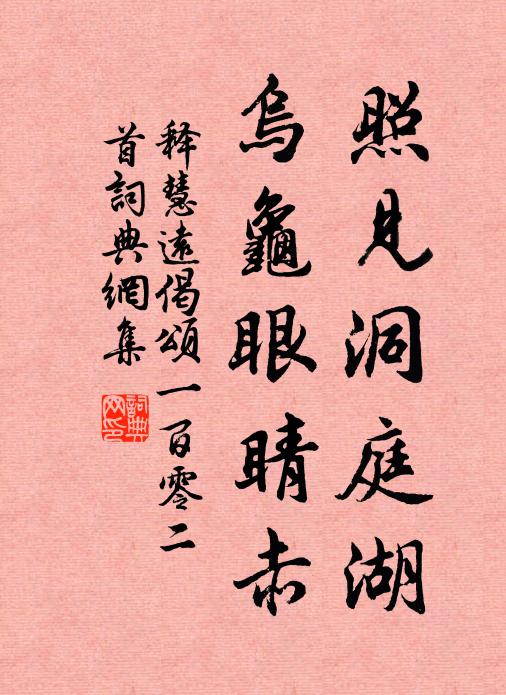 照見洞庭湖
烏龜眼睛赤
释慧遠偈頌一百零二
首詞典網集
詞典網印